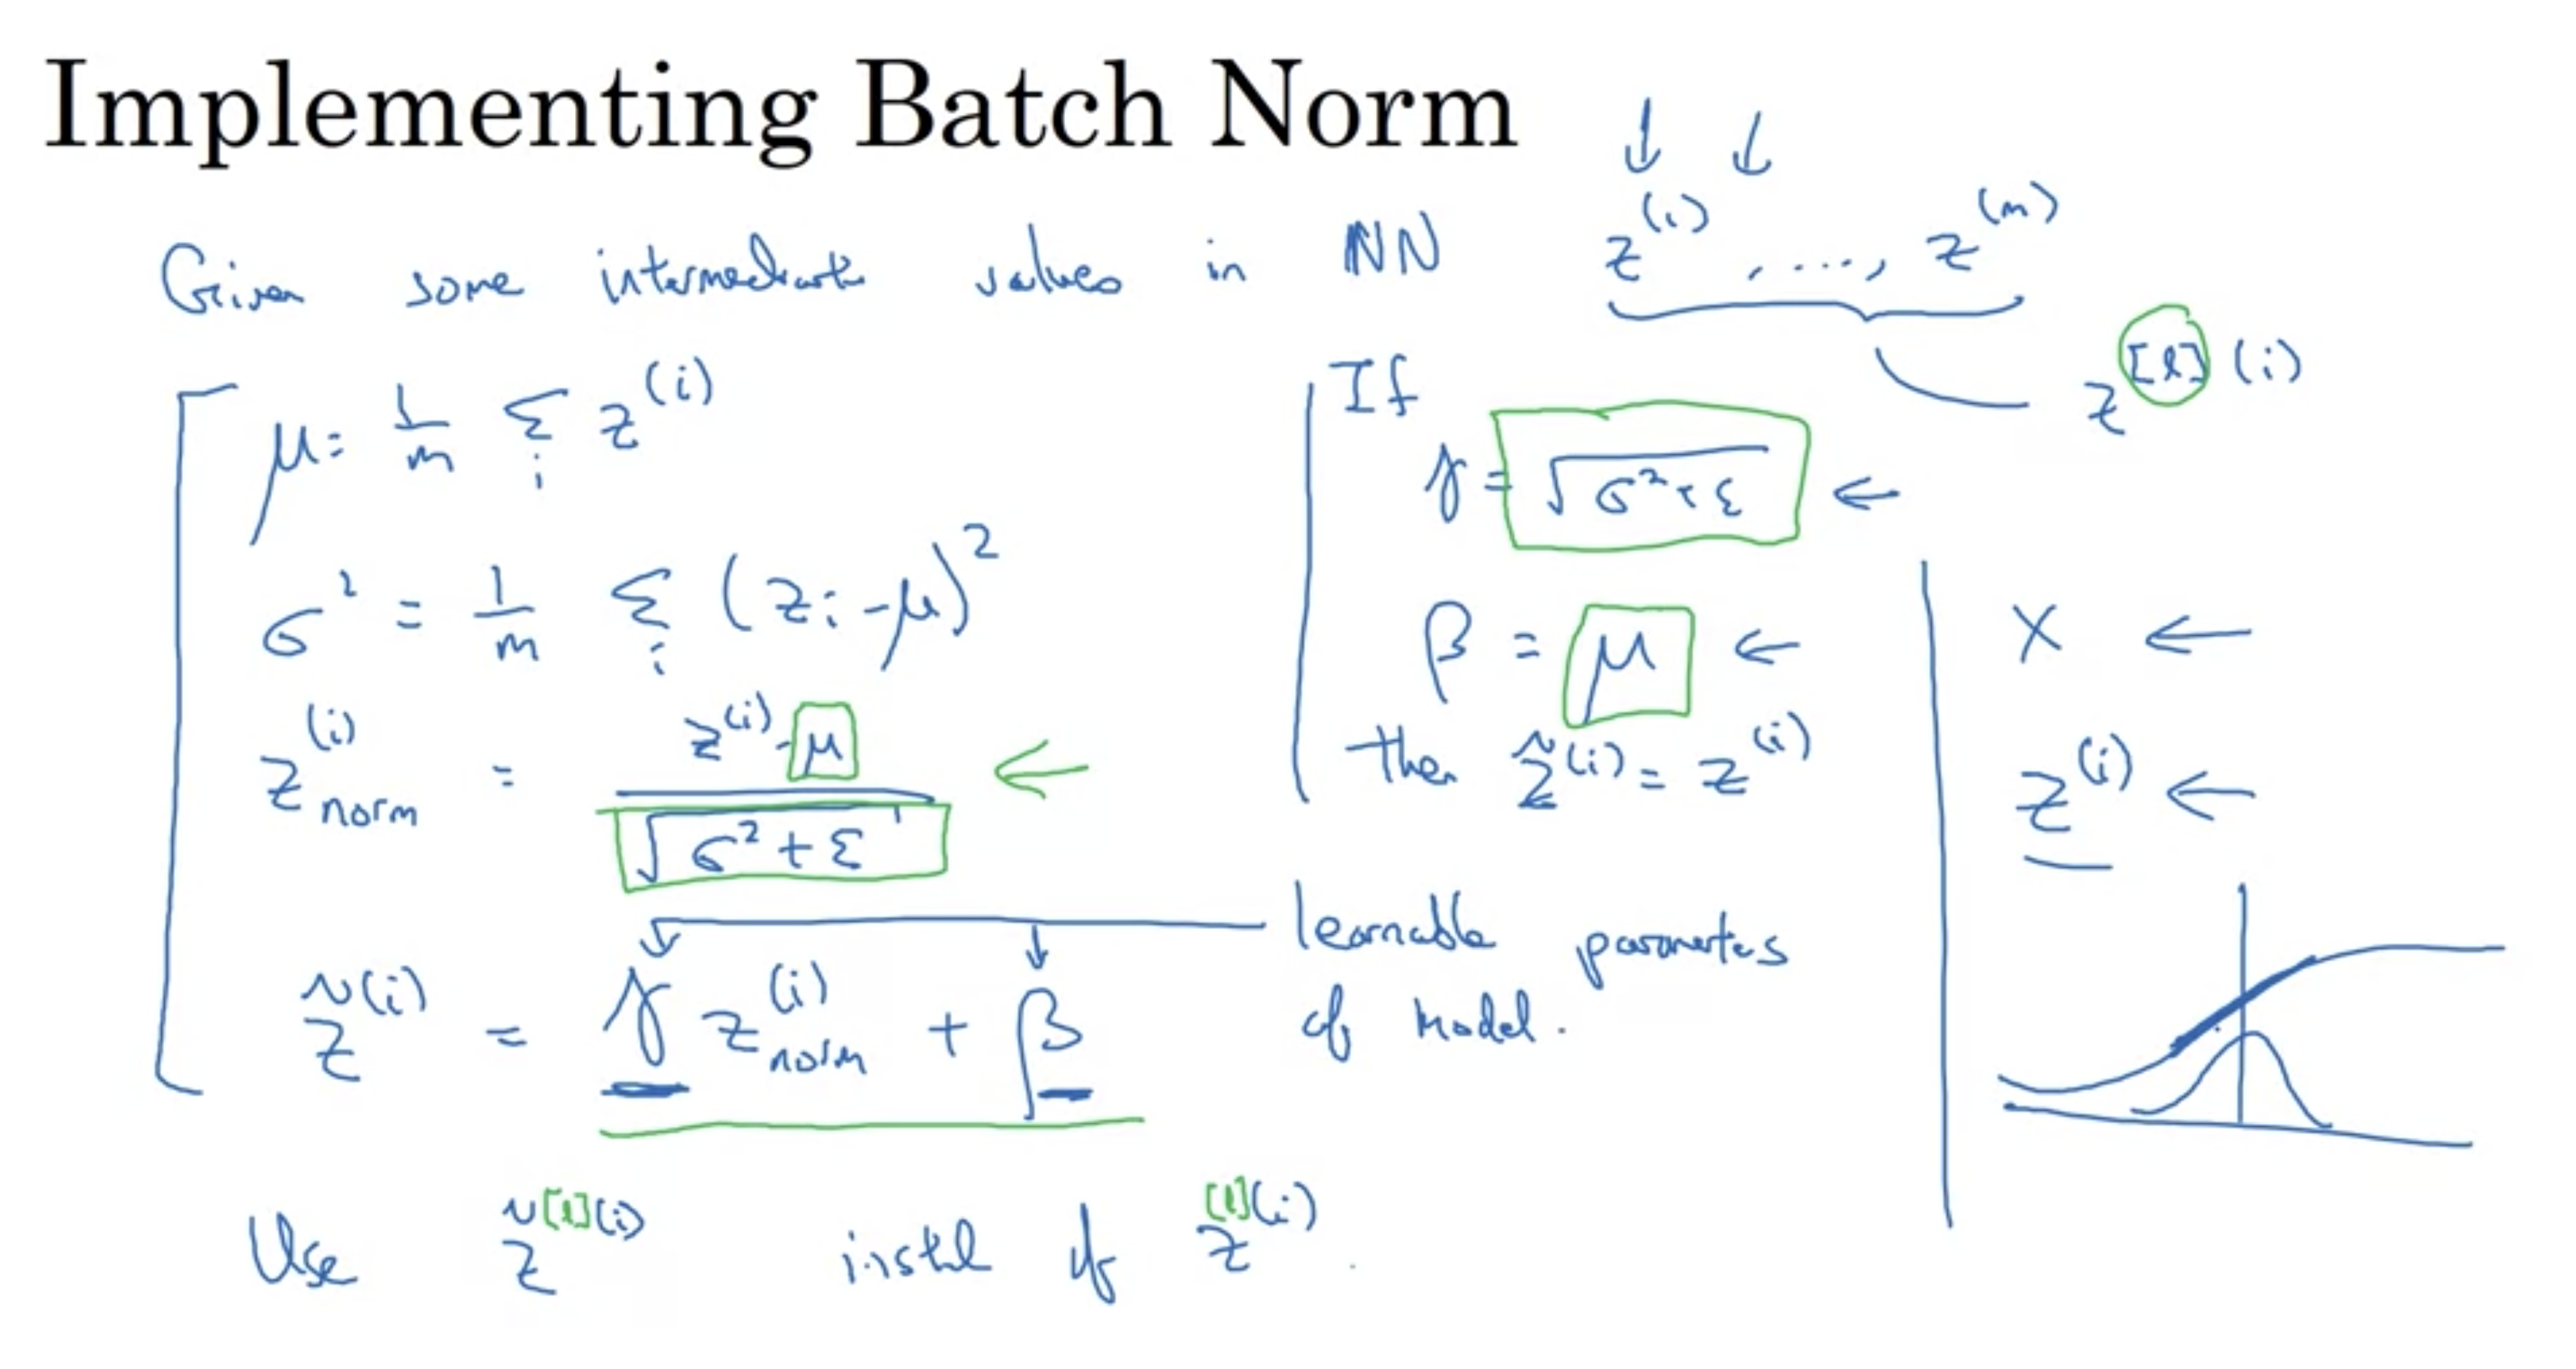 Implementing Batch Norm
Given some intermediate values in NN z^(i) , ...., z^(m)
z^[l](i)
μ = 1/m Σ_i z^(i)
σ² = 1/m Σ_i (z_i - μ)²
z^(i)_norm = (z^(i) - μ) / √(σ² + ε)
z̃^(i) = γ z^(i)_norm + β
learnable parameters
of model.
If
γ = √(σ² + ε) ←
β = μ ←
then z̃^(i) = z^(i)
X ←
z^(i) ←
Use z̃^[l](i) instead of z^[l](i) .